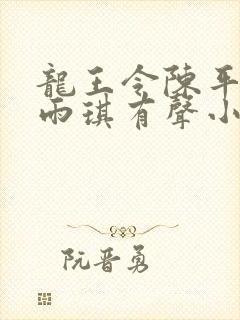 龍王令陳平
雨琪有聲小
阮晋勇